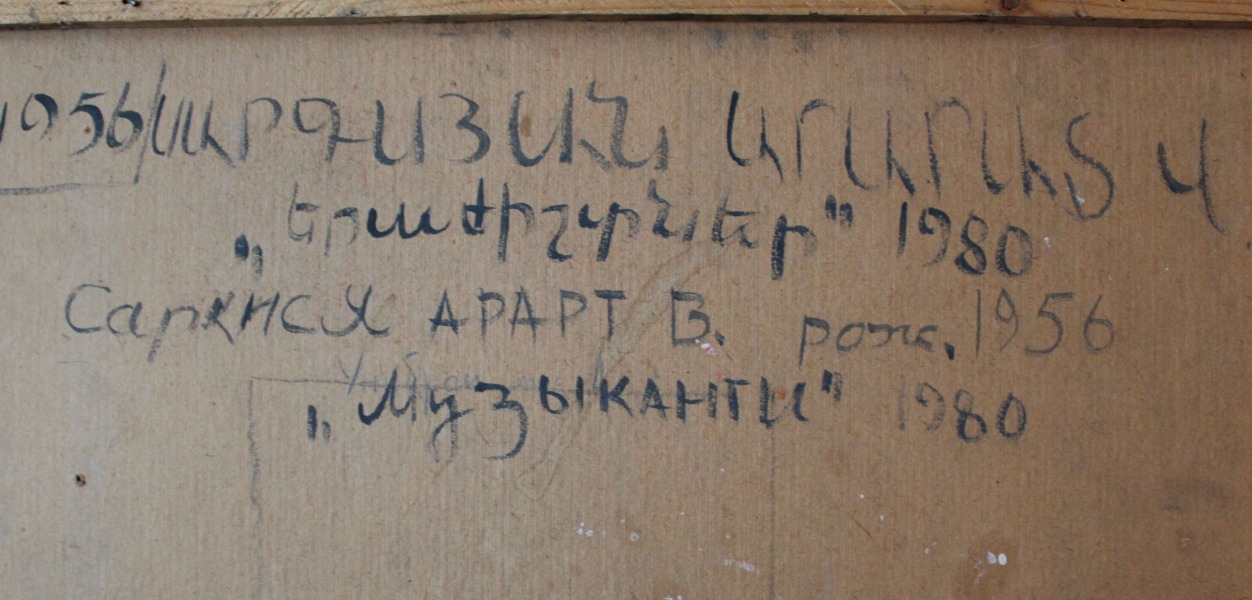 1956/ՍԱՐԳՍՅԱՆ ԱՐԱՐԱՏ Վ
„Երաժիշտներ" 1980
Саркнся АРАРТ В. рож. 1956
„Музыканти" 1980